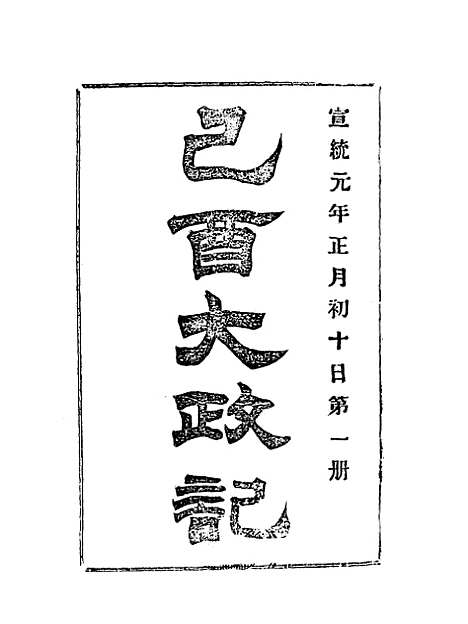 宣統元年正月初十日第一册
己酉大政記